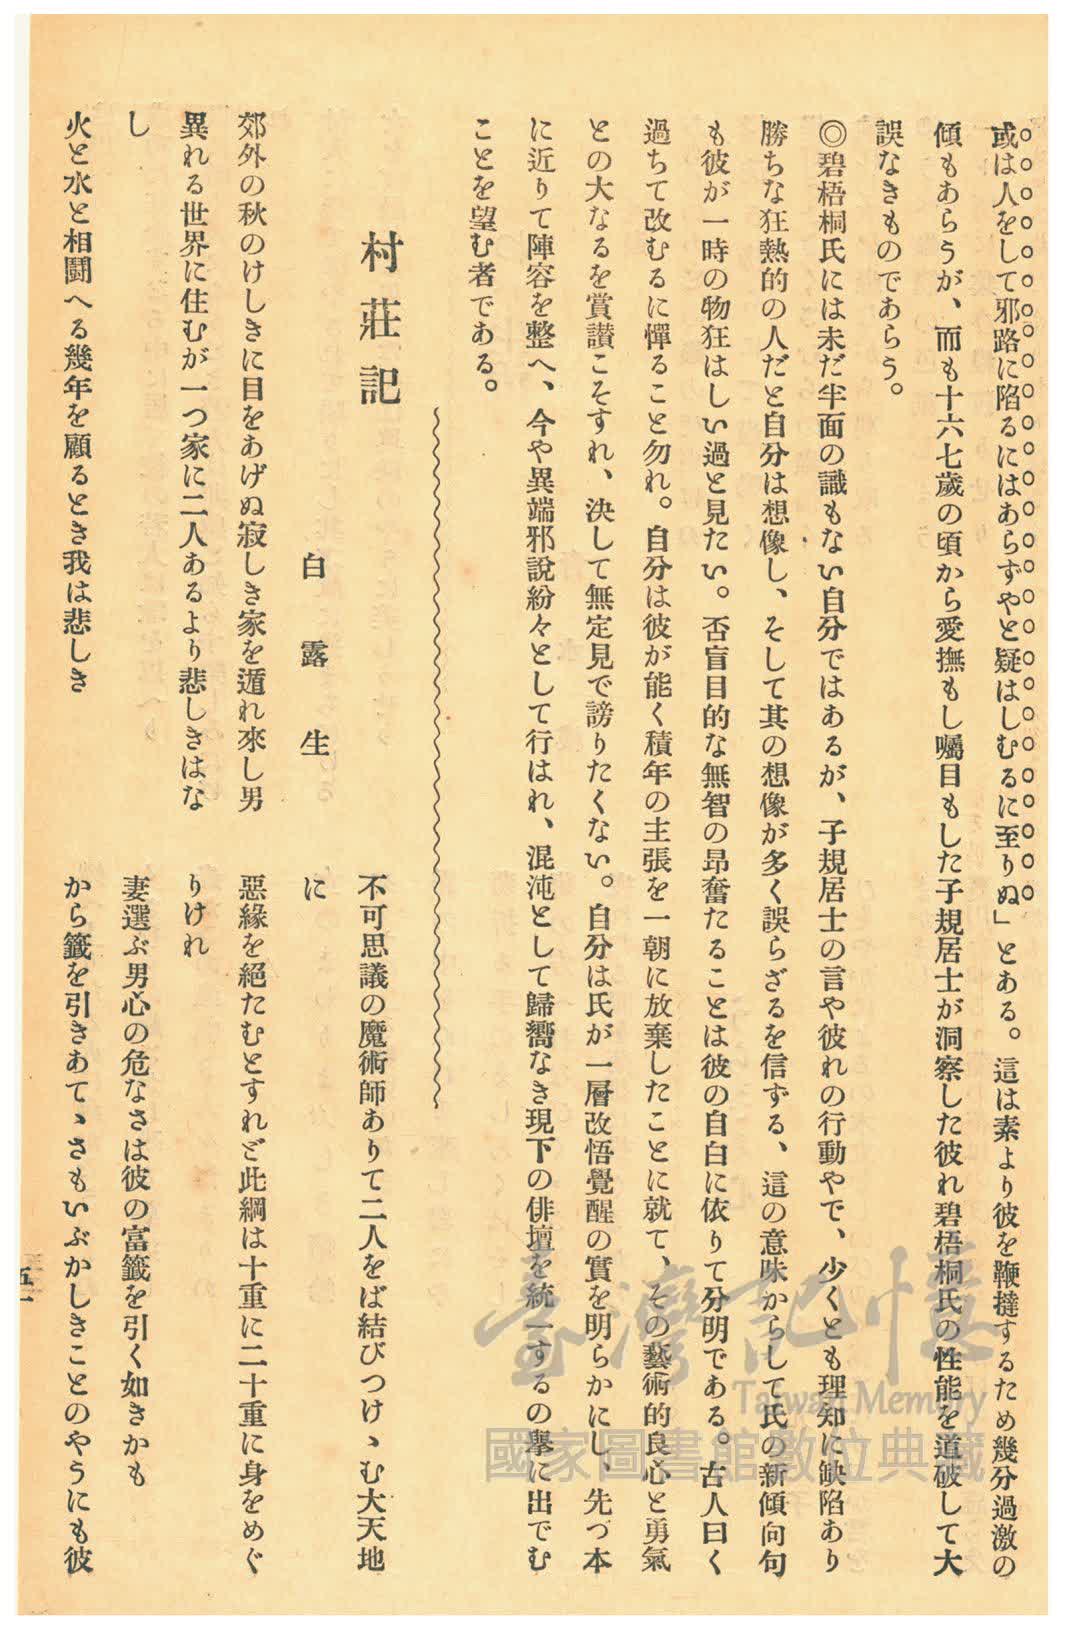 或は人をして邪路に陷るにはあらずやと疑はしむるに至りぬ」とある。這は素より彼を鞭撻するため幾分過激の
傾もあらうが、而も十六七歲の頃から愛撫もし囑目もした子規居士が洞察した彼れ碧梧桐氏の性能を道破して大
誤なきものであらう。
◎碧梧桐氏には未だ半面の識もない自分ではあるが、子規居士の言や彼れの行動やで、少くとも理知に缺陷あり
勝ちな狂熱的の人だと自分は想像し、そして其の想像が多く誤らざるを信ずる、這の意味からして氏の新傾向句
も彼が一時の物狂はしい過と見たい。否盲目的な無智の昂奮たることは彼の自白に依りて分明である。古人曰く
過ちて改むるに憚ること勿れ。自分は彼が能く積年の主張を一朝に放棄したことに就て、その藝術的良心と勇氣
との大なるを賞讃こそすれ、決して無定見で謗りたくない。自分は氏が一層改悟覺醒の實を明らかにし、先づ本
に近りて陣容を整へ、今や異端邪說紛々として行はれ、混沌として歸嚮なき現下の俳壇を統一するの擧に出でむ
ことを望む者である。
村莊記
白露生
郊外の秋のけしきに目をあげぬ寂しき家を遁れ來し男
異れる世界に住むが一つ家に二人あるより悲しきはな
し
火と水と相鬪へる幾年を顧るとき我は悲しき
不可思議の魔術師ありて二人をば結びつけゝむ大天地
に
惡緣を絕たむとすれど此綱は十重に二十重に身をめぐ
りけれ
妻選ぶ男心の危なさは彼の富籤を引く如きかも
から籤を引きあてゝさもいぶかしきことのやうにも彼
五一
臺灣記憶
Taiwan Memory
國家圖書館數位典藏